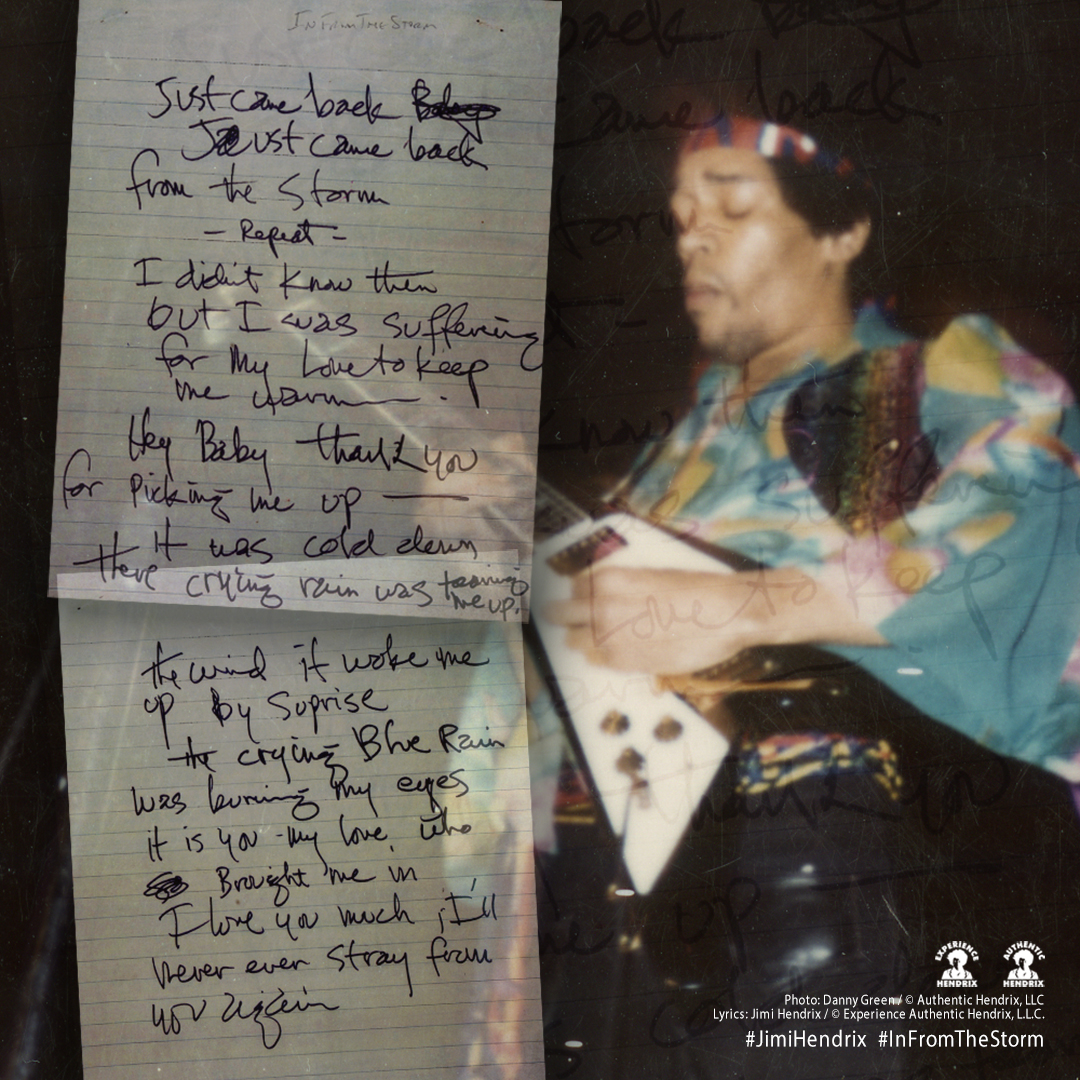 In From The Storm
Just came back
Just came back
from the Storm
- Repeat -
I didn't know then
but I was suffering
for my Love to keep
me warm .
Hey Baby thank you
for picking me up
it was cold down
there crying rain was tearing
me up.
the wind it woke me
up by Suprise
the crying Blue Rain
was burning my eyes
it is you my love, who
Brought me in
I love you much ; I'll
never ever stray from
you again
EXPERIENCE HENDRIX
AUTHENTIC HENDRIX
Photo: Danny Green / © Authentic Hendrix, LLC
Lyrics: Jimi Hendrix / © Experience Hendrix, L.L.C.
#JimiHendrix #InFromTheStorm